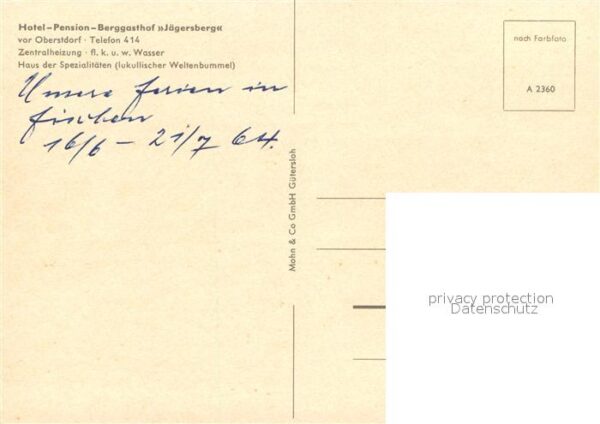 Hotel-Pension-Berggasthof »Jägersberg«
vor Oberstdorf · Telefon 414
Zentralheizung · fl. k. u. w. Wasser
Haus der Spezialitäten (lukullischer Weltenbummel)
Unsere Ferien in
Fischen
16/6 - 21/7 64.
Mohn & Co GmbH Gütersloh
nach Farbfoto
A 2360
privacy protection
Datenschutz